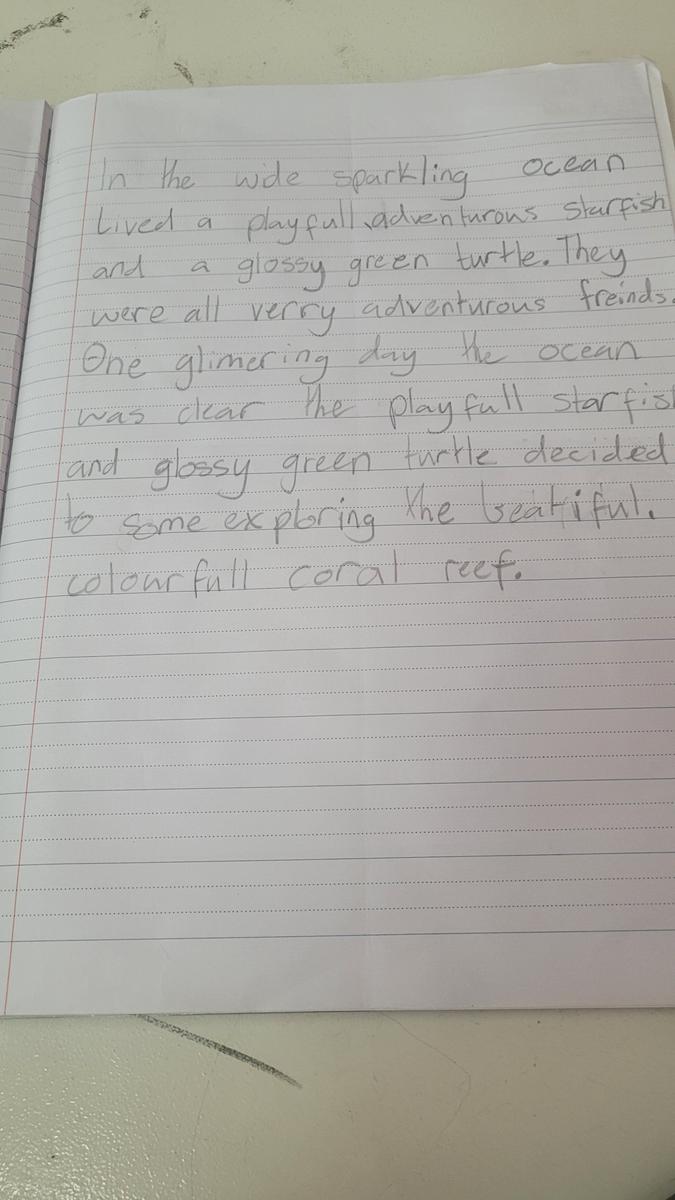 In the wide sparkling ocean
Lived a playfull, adventurous starfish
and a glossy green turtle. They
were all verry adventurous freinds.
One glimering day the ocean
was clear the playfull starfis
and glossy green turtle decided
to some exploring the beatiful.
colourfull coral reef.